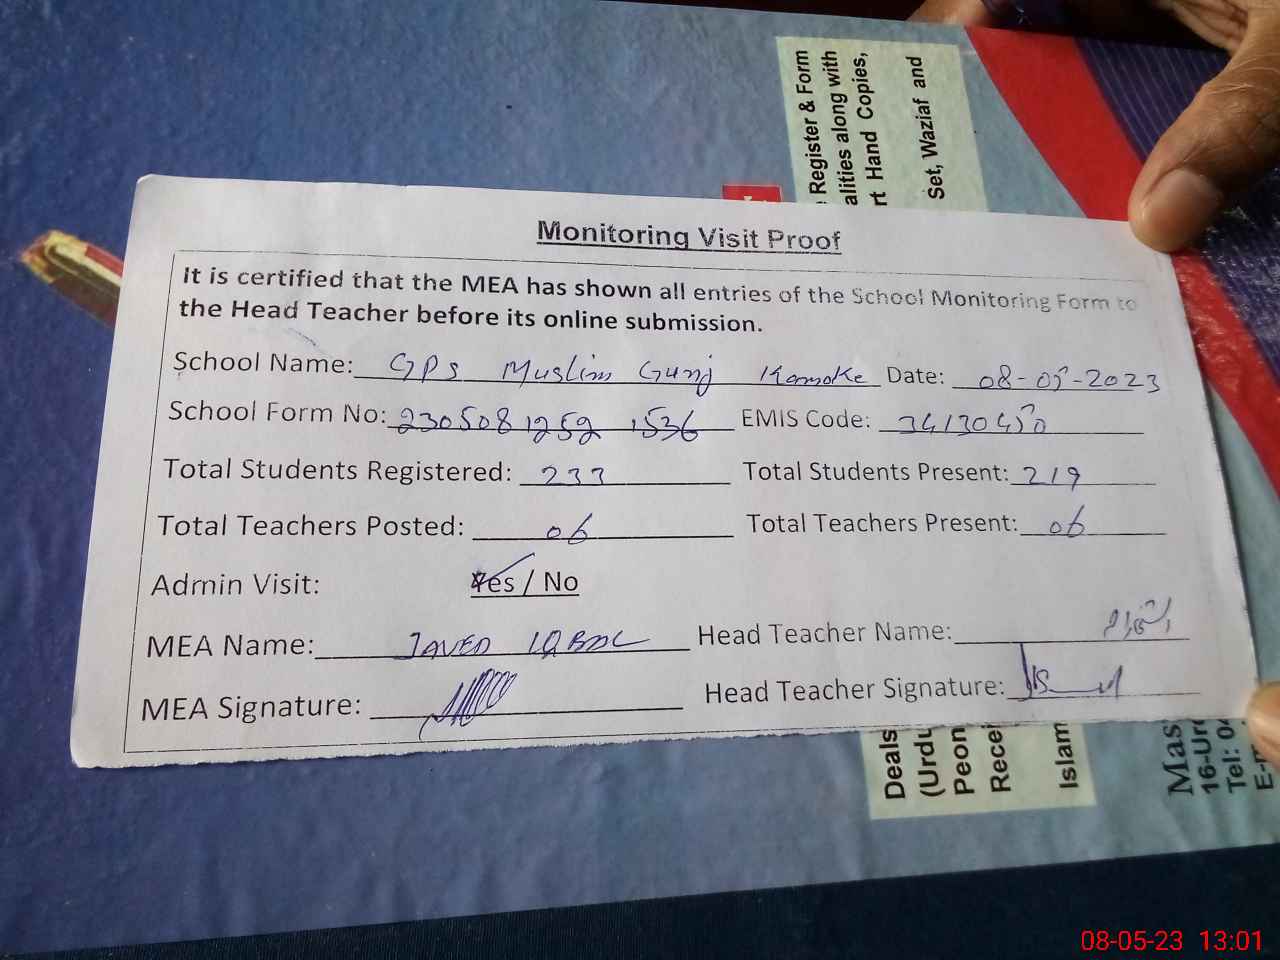 Register & Form
alities along with
rt Hand Copies,
Set, Waziaf and
Monitoring Visit Proof
It is certified that the MEA has shown all entries of the School Monitoring Form to
the Head Teacher before its online submission.
School Name: GPS Muslim Gunj Kamoke Date: 08-05-2023
School Form No: 2305081252 1536 EMIS Code: 34130450
Total Students Registered: 233 Total Students Present: 219
Total Teachers Posted: 06 Total Teachers Present: 06
Admin Visit: Yes / No
MEA Name: JAVED IQBAL Head Teacher Name:
MEA Signature: Head Teacher Signature:
Deals
(Urdu
Peon
Recei
Islam
Mas
16-Urd
Tel: 04
E-m
08-05-23 13:01